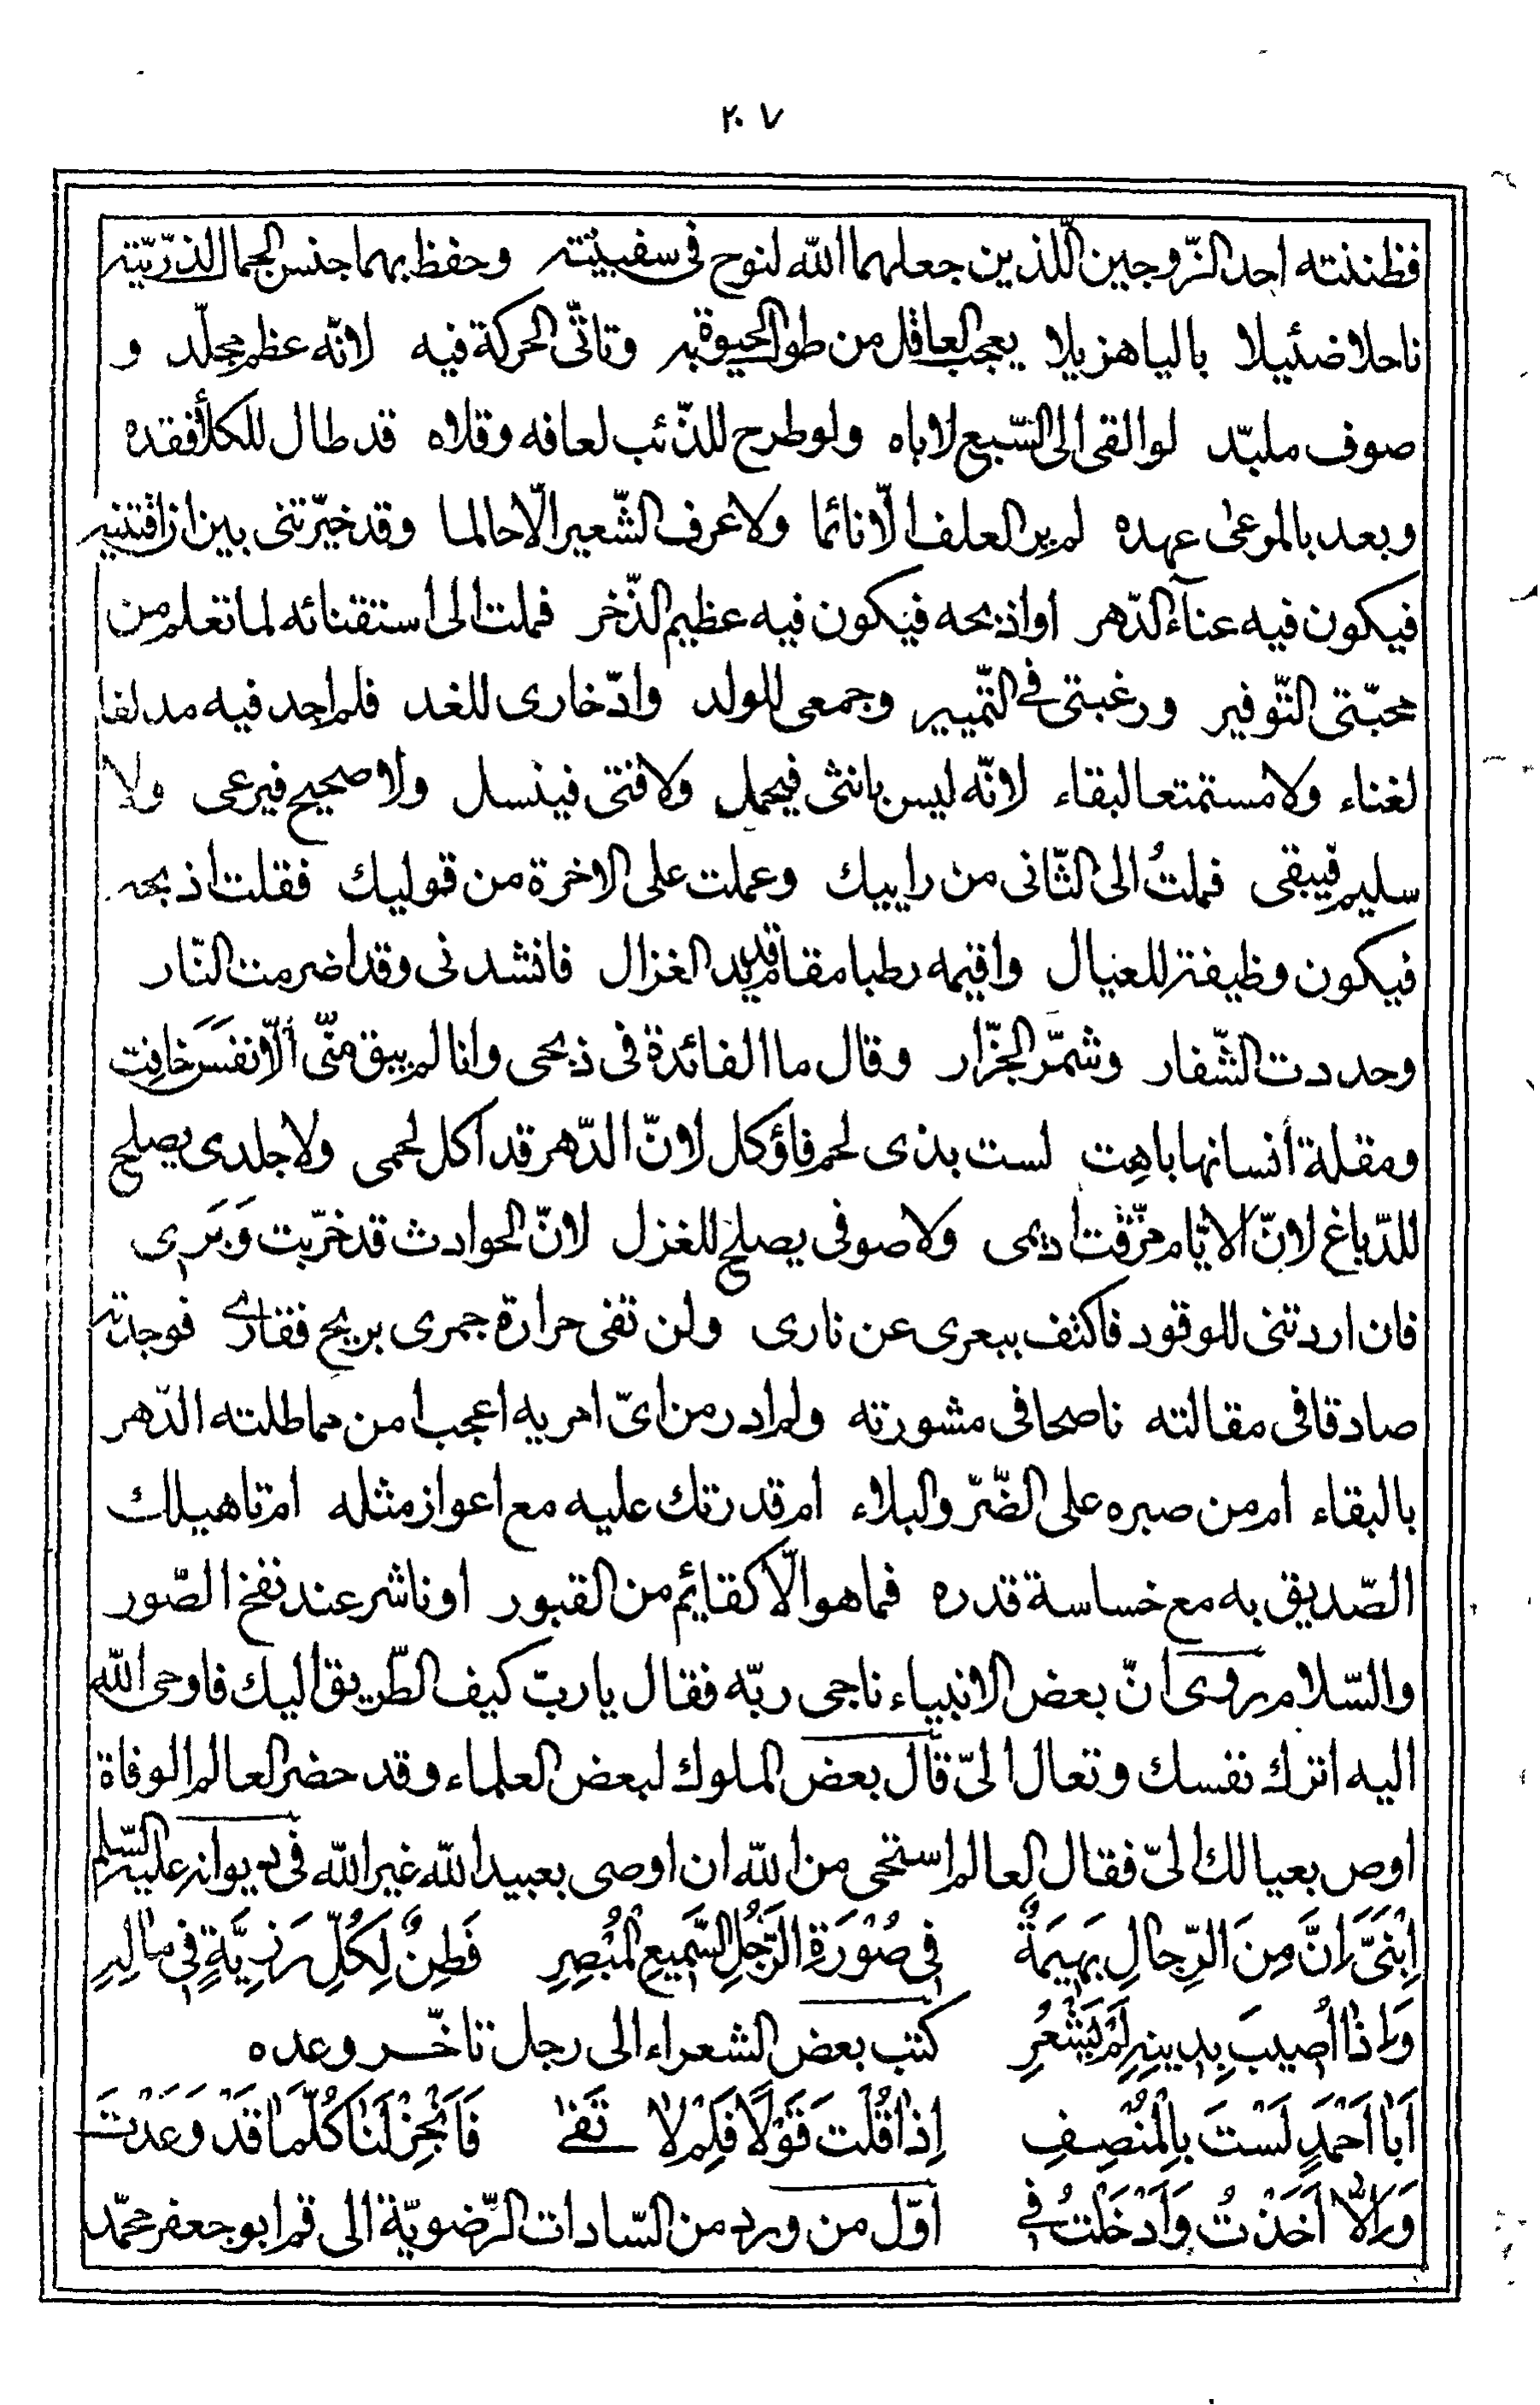 ٢٠٧
فظننته احد الزّوجين اللّذين جعلهما الله لنوح فى سفينته وحفظ بهما جنس الجمال لذرّيّته
ناحلا ضئيلا باليا هزيلا يعجب العاقل من طول الحيوة به وتاتّى الحركة فيه لانّه عظم مجلّد و
صوف ملبّد لو القى الى السّبع لاباه ولو طرح للذّئب لعافه وقلاه قد طال للكلأ فقده
وبعد بالمرعى عهده لم ير العلف الّا نائما ولا عرف الشّعير الّا حالما وقد خيّرتنى بين ان اقتنيه
فيكون فيه عنآء الدّهر او اذبحه فيكون فيه عظيم الذّخر فملت الى استقنائه لما تعلم من
محبّتى التّوفير ورغبتى فى التّمير وجمعى للولد وادّخارى للغد فلم اجد فيه مدلفا
لغناء ولا مستمتعا لبقاء لانّه ليس بانثى فيحمل ولا فتى فينسل ولا صحيح فيرعى ولا
سليم فيبقى فملتُ الى الثّانى من راييك وعملت على الاخرة من قوليك فقلت اذبحه
فيكون وظيفة للعيال واقيمه رطبا مقام قديد الغزال فانشدنى وقد اضرمت النّار
وحددت الشّفار وشمّر الجزّار وقال ما الفائدة فى ذبحى وانا لم يبق منّى الّا نفَسَ خافِت
ومقلة انسانها باهِت لست بذى لحم فاؤكل لانّ الدّهر قد اكل لحمى ولا جلدى يصلح
للدّباغ لانّ الايّام مزّقت اديمى ولا صوفى يصلح للغزل لانّ الحوادث قد خرّبت وَبَرى
فان اردتنى للوقود فاكثف ببعرى عن نارى ولن تفى حرارة جمرى بريح فقارى فوجدته
صادقا فى مقالته ناصحا فى مشورته ولم ادر من اىّ امريه اعجب امن مماطلته الدّهر
بالبقاء ام من صبره على الضّرّ والبلاء ام قدرتك عليه مع اعواز مثله ام تاهيلك
الصّديق به مع خساسة قدره فما هو الّا كقايم من القبور او ناشر عند نفخ الصّور
والسّلام روى انّ بعض الانبياء ناجى ربّه فقال يا ربّ كيف الطّريق اليك فاوحى الله
اليه اترك نفسك وتعال الىّ قال بعض الملوك لبعض العلماء وقد حضر العالم الوفاة
اوص بعيالك الىّ فقال العالم استحى من الله ان اوصى بعبيد الله غير الله فى ديوانه عليه السّلم
اِبْنَىَّ اِنَّ مِنَ الرِّجالِ بَهيمَةٌ فى صُوْرَةِ الرَّجُلِ السَّميعِ الْمُبْصِرِ فَطِنٌ لِكُلِّ رَزِيَّةٍ فى مالِهِ
وَاِذا اُصيبَ بِدينِهِ لَمْ يَشْعُرِ كتب بعض الشعراء الى رجل تاخّر وعده
اَبا اَحْمَدٍ لَسْتَ بِالْمُنْصِفِ اِذا قُلْتَ قَوْلًا فَلِمْ لا تَفى فَاَنْجِزْ لَنا كُلَّما قَدْ وَعَدْتَ
وَاِلّا اَخَذْتُ وَاَدْخَلْتُ فى اوّل من ورد من السّادات الرّضويّة الى قم ابو جعفر محمّد